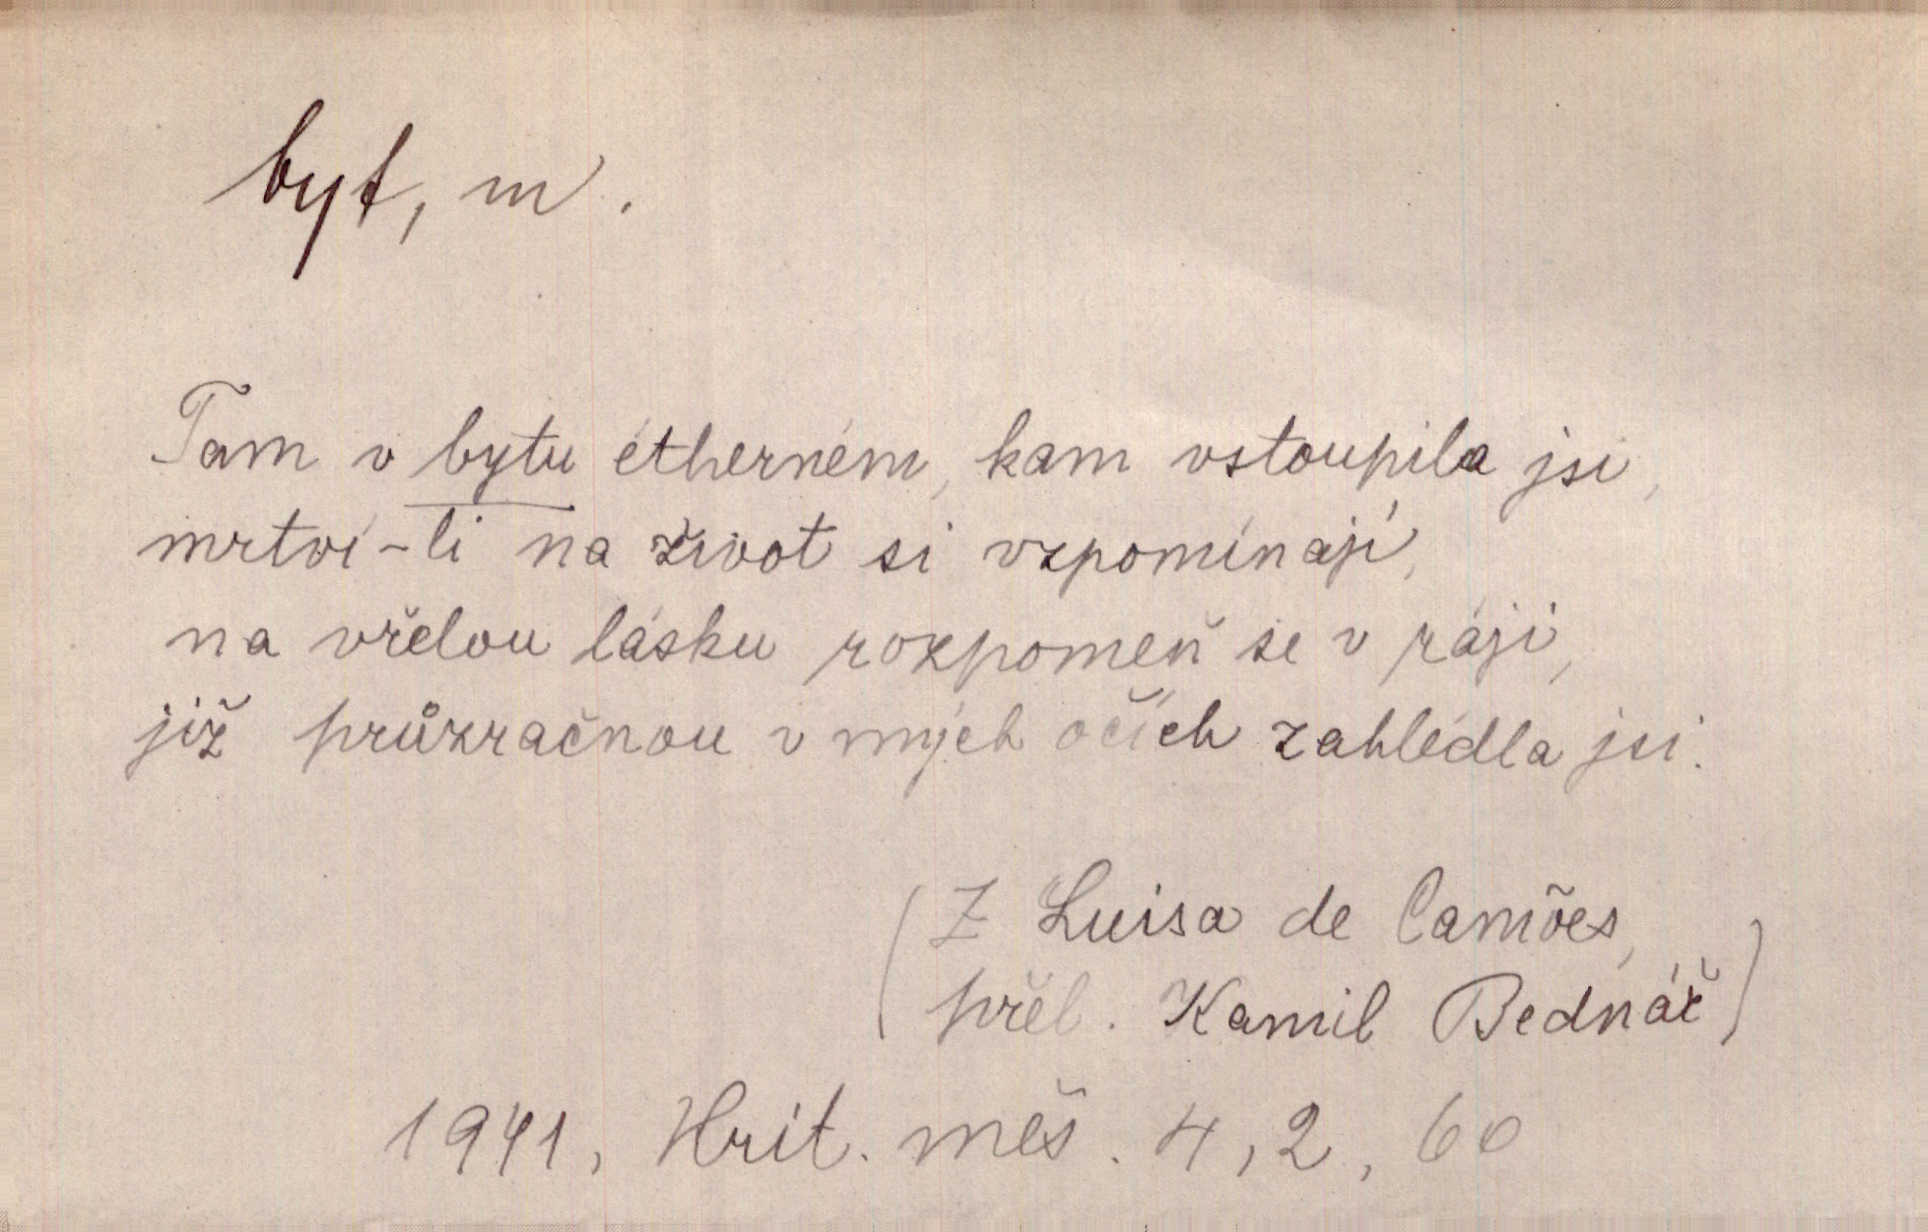 byt, m.
Tam v bytu étherném, kam vstoupila jsi,
mrtví-li na život si vzpomínají,
na vřelou lásku rozpomeň se v ráji,
již průzračnou v mých očích zahlédla jsi.
(Z Luisa de Camões,
přel. Kamil Bednář)
1941, Krit. měs. 4, 2, 60